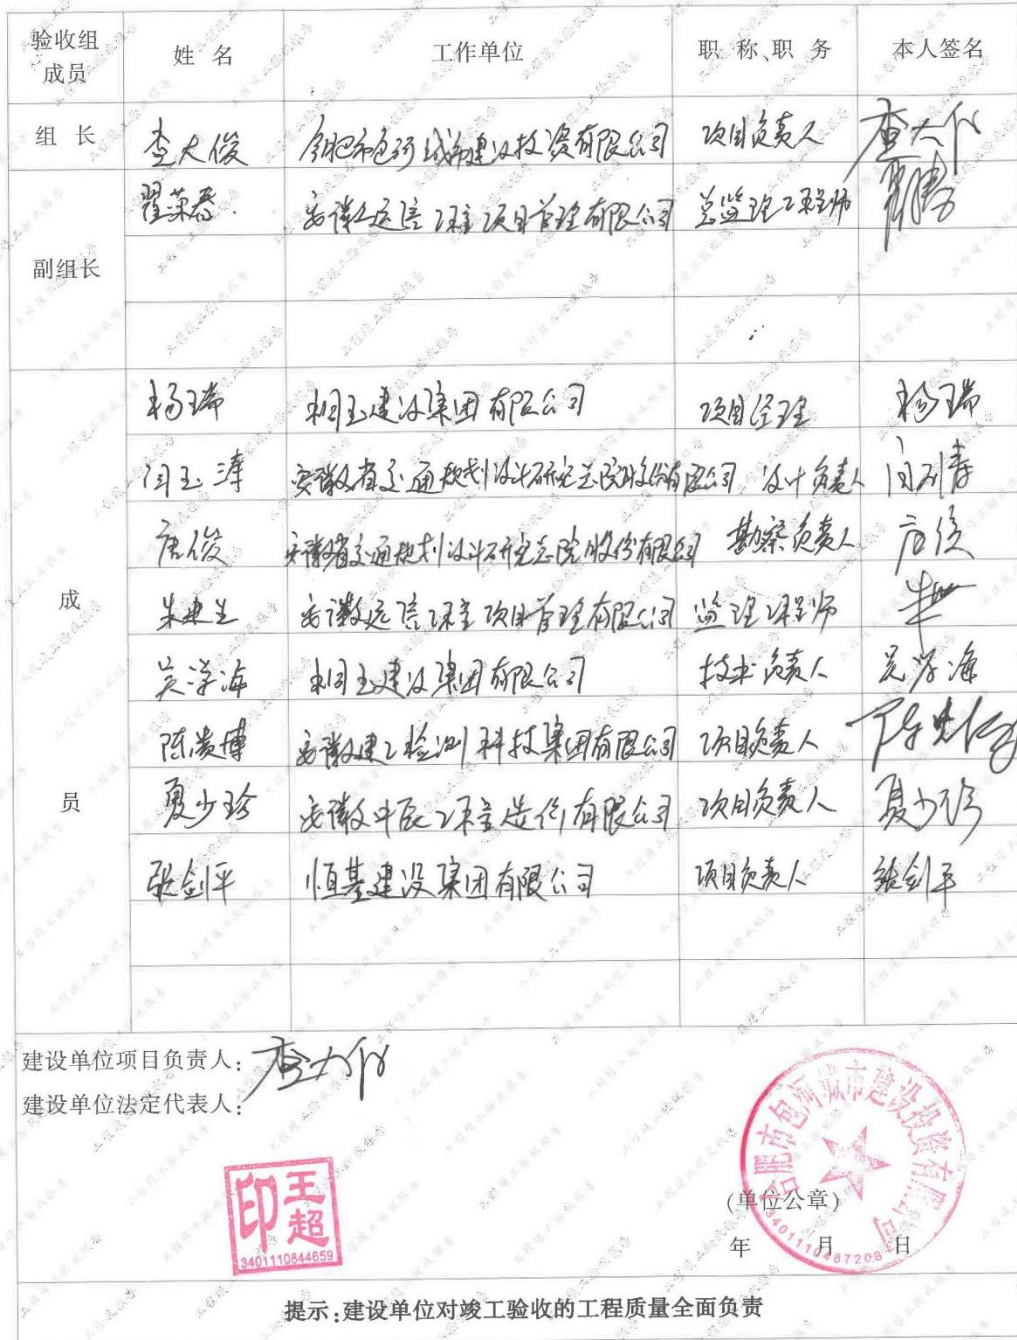 验收组成员 姓 名 工作单位 职 称、职 务 本人签名
组 长 查大俊 合肥市包河城市建设投资有限公司 项目负责人
副组长 翟荣春 安徽远信工程项目管理有限公司 总监理工程师
成员
杨瑞 桐玉建设集团有限公司 项目经理 杨瑞
闫玉涛 安徽省交通规划设计研究总院股份有限公司 设计负责人
唐俊 安徽省交通规划设计研究总院股份有限公司 勘察负责人 唐俊
朱建生 安徽远信工程项目管理有限公司 监理工程师
吴学海 桐玉建设集团有限公司 技术负责人 吴学海
陈 博 安徽建工检测科技集团有限公司 项目负责人
夏少珍 安徽中辰工程造价有限公司 项目负责人 夏少珍
张剑平 恒基建设集团有限公司 项目负责人 张剑平
建设单位项目负责人:
建设单位法定代表人:
王超印
3401110844659
合肥市包河城市建设投资有限公司
3401110487208
(单位公章)
年 月 日
提示:建设单位对竣工验收的工程质量全面负责